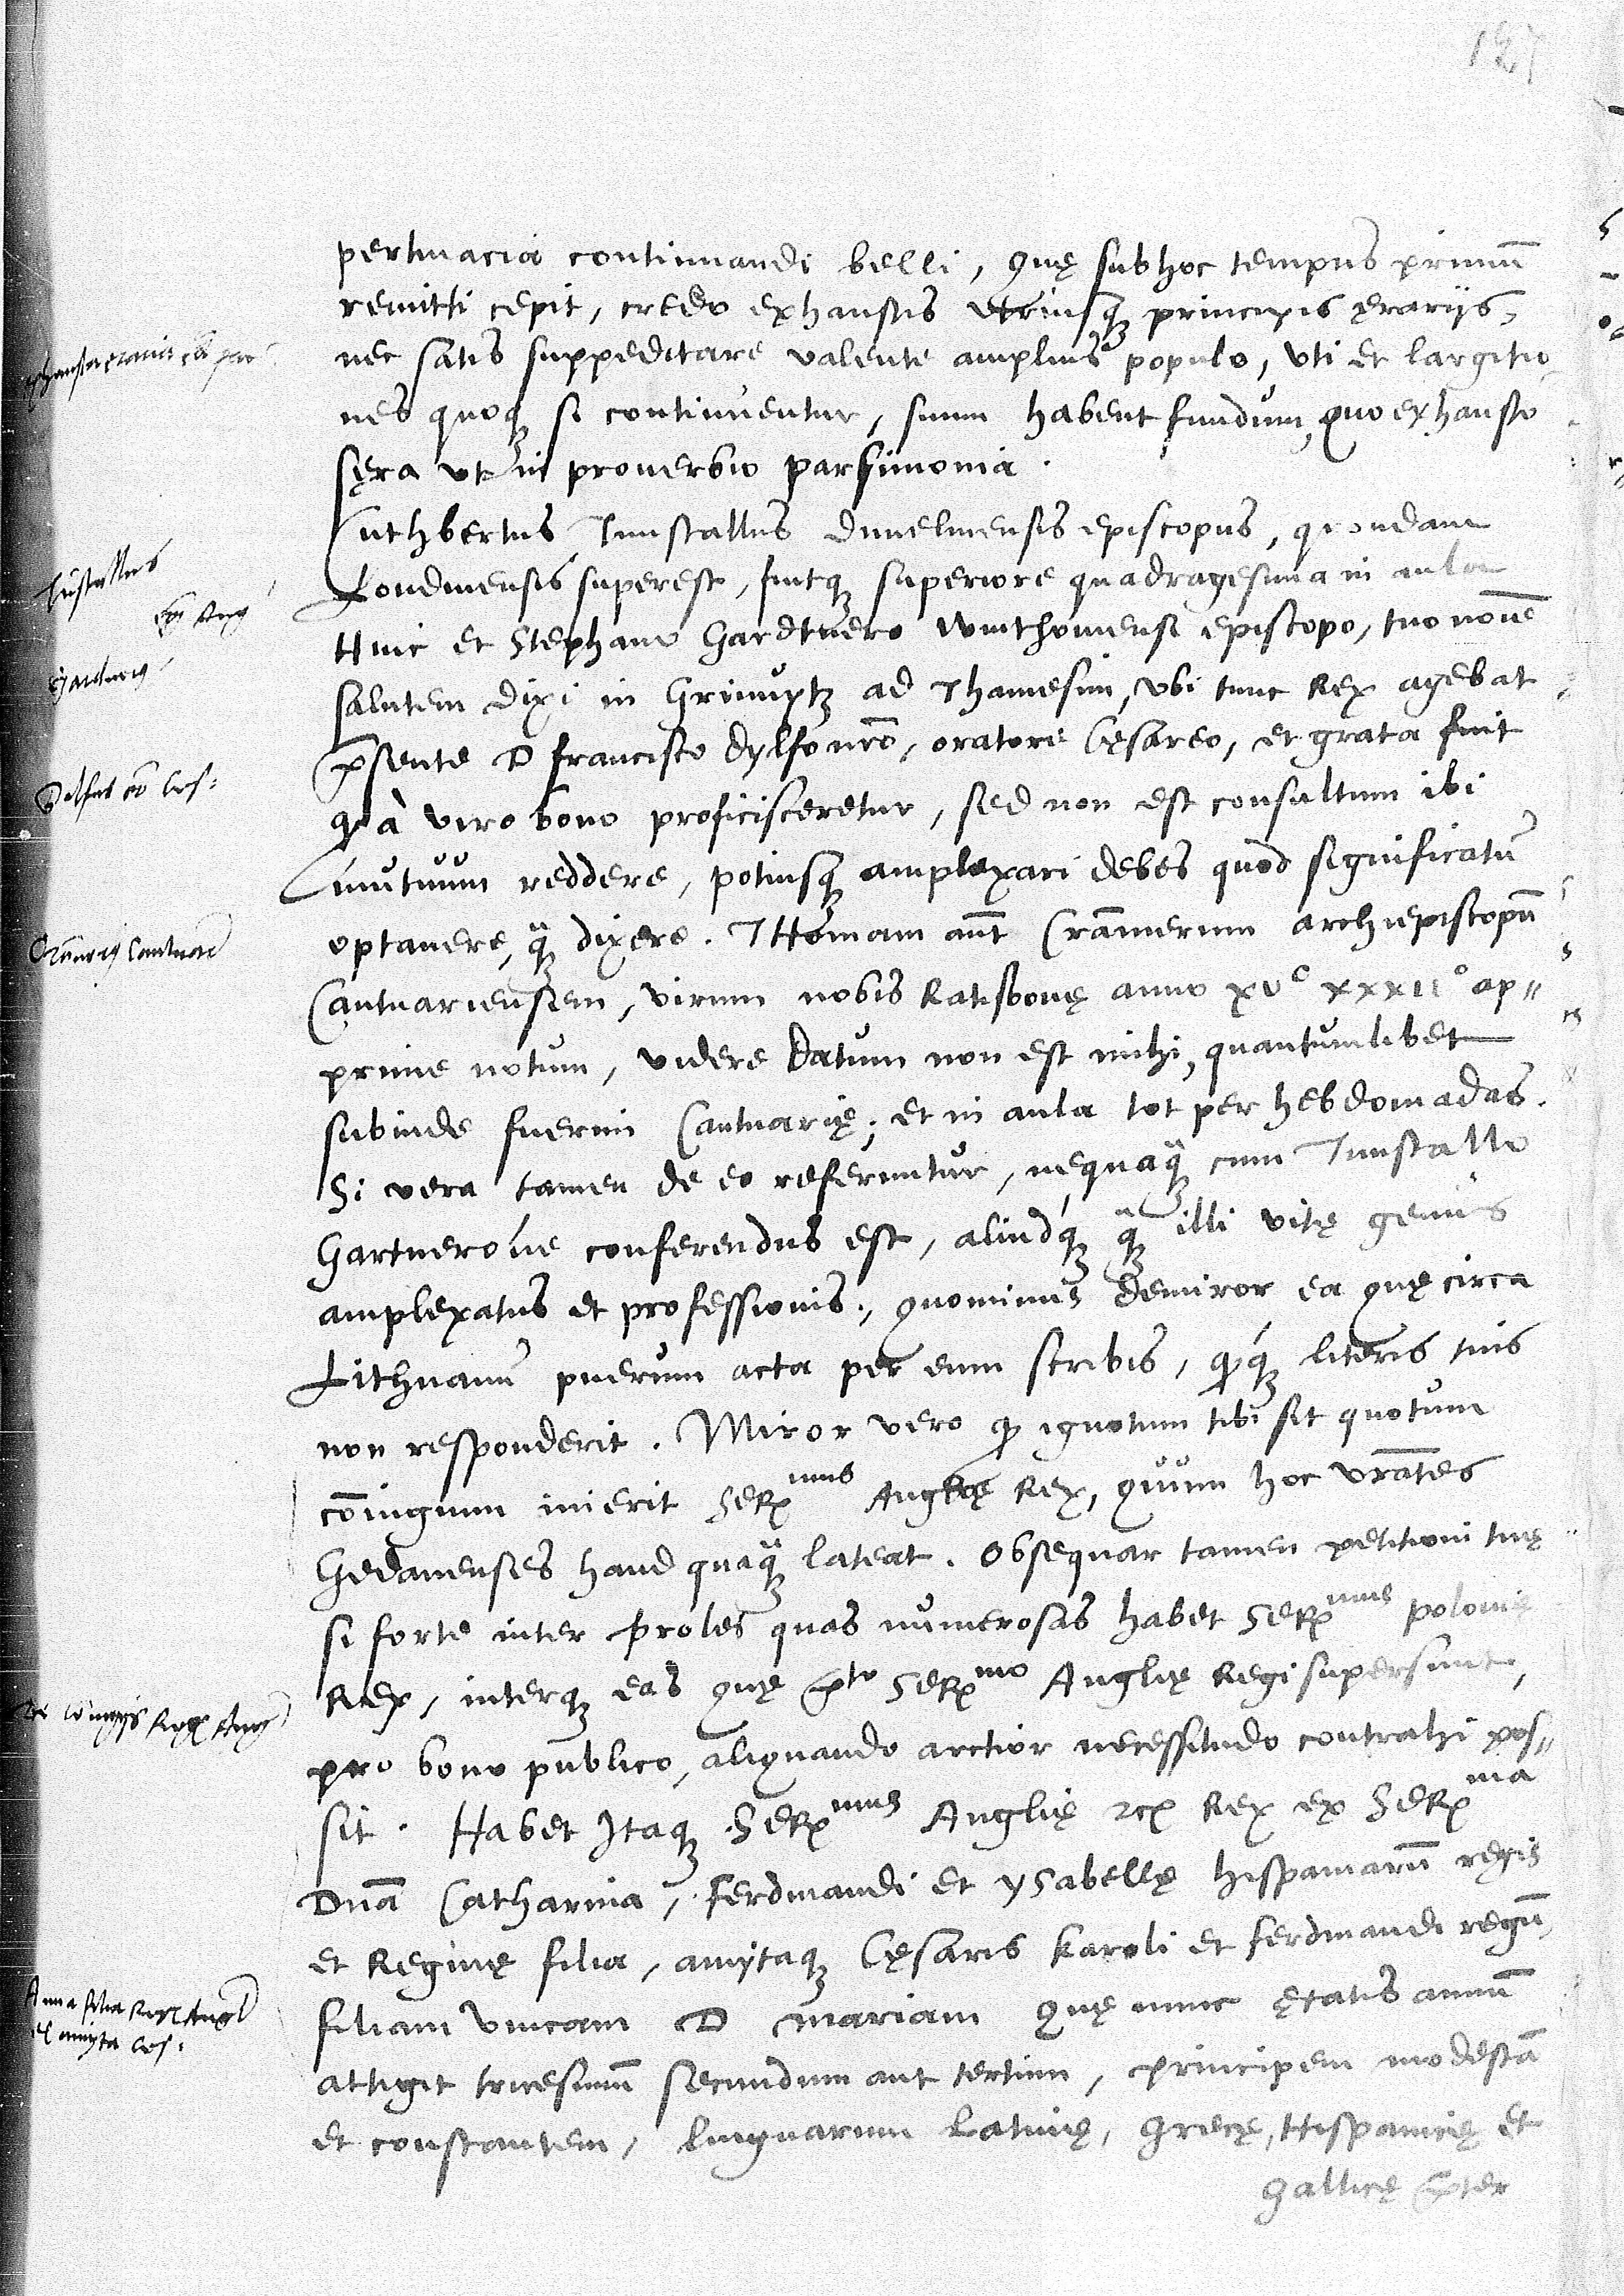 127
pertinacia continuandi belli, quę sub hoc tempus primũ
remitti cepit, credo exhaustis utriusq; principis ęrarijs,
nec satis suppeditare valente amplius populo, vti et largitio
nes quoq; si continuentur, suum habent fundum, quo exhausto
sęra ut in prouerbio parsimonia.
Cuthbertus Tunstallus Dunelmensis episcopus, quondam
Londinensis superest, fuitq; superiore quadragesima in aula
Huic et Stephano Gardtnero winthoniensi episcopo, tuo noīe
salutem dixi in Grinuytz ad Thamesim, vbi tunc Rex agebat
p̃sente D Francisco Dylfo nr̃o, oratore Cęsareo, et grata fuit
q à viro bono proficisceretur, sed non est consultum ibi
mutuum reddere, potiusq; amplexari debes quod significatũ
optauere, q̃; dixere. THomam aũt Crãmerum archiepiscopũ
Cantuariensem, virum nobis Ratisbonę anno xvᶜ xxxiiº ap//
prime notum, videre datum non est mihi, quantumlibet
subinde fuerim Cantuarię; et in aula tot per hebdomadas.
Si vera tamen de eo referuntur, nequaq̃; cum Tunstallo
Gartneróue conferendus est, aliudq́; q̃; illi vitę genus
amplexatus et professionis., quominus demiror ea quę circa
Lithuanũ puerum acta per eum scribis, qq́; literis tuis
non responderit. Miror vero q ignotum tibi sit quotum
cõiugium inierit SeRmus Anglię Rex, quum hoc vrãtes
Gedanenses haud quaq̃; lateat. Obsequar tamen petitioni tuę
si forte inter proles quas numerosas habet SeRmus polonię
Rex, interq; eas quę p̃to SeRmo Anglię Regi supersunt,
pro bono publico, aliquando arctior necessitudo contrahi pos//
sit. Habet Itaq; SeRmus Anglię Rex ex SeRma
Dnã Catharina, Ferdinandi et ysabellę hispaniarũ regis
et Reginę filia, amytaq; Cęsaris Karoli et Ferdinandi regũ,
filiam vnicam D mariam quę nunc ętatis annũ
attigit tricesimũ secundum aut tertium, principem modestã
et constantem, linguarum Latinę, Gręcę, Hispanicę et
Gallicę p̃ter
Tũstallus
Gardnerus
Crãnerus Cantuar
De cõiugijs Regis Ang
Anna filia Regis Angl
et amyta Ces: